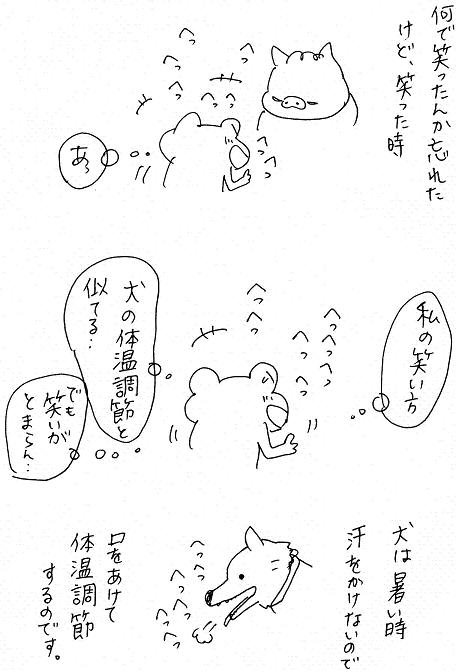 何で笑ったんか忘れた
けど、笑った時
へっ
へっ
へっ
へっへっ
へっ
へっ
へっ
あっ
私の笑い方
へっへっへっ
へっへっ
へっへっ
犬の体温調節と
似てる…
でも
笑いが
とまらん…
犬は暑い時
汗をかけないので
へっへっ
へっへっ
へっへっ
口をあけて
体温調節
するのです。